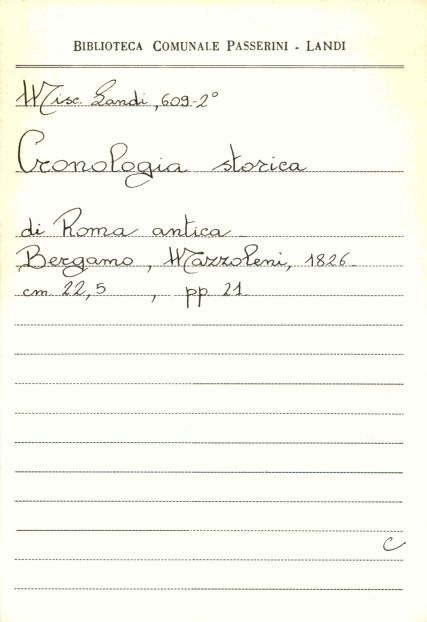 BIBLIOTECA COMUNALE PASSERINI - LANDI
Misc. Landi, 609-2°
Cronologia storica
di Roma antica
Bergamo, Mazzoleni, 1826.
cm 22,5 , pp 21
C